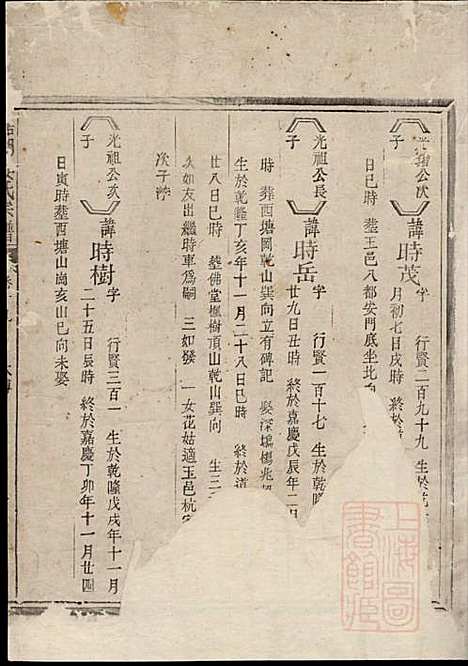 光祖公次子
諱時茂字 行賢一百九十九 生於乾
月初七日戌時 終於
日巳時 塟玉邑八都安門底坐北
光祖公長子
諱時岳字 行賢一百十七 生於乾隆
廿九日丑時 終於嘉慶戊辰年二月
時 葬西塘岡乾山巽向立有碑記 娶深塢楊兆
生於乾隆丁亥年十一月二十八日巳時 終於道
廿八日巳時 塟佛堂楓樹頂山乾山巽向 生三
次如友出繼時車爲嗣 三如發 一女花姑適玉邑杭
次子
光祖公次子
諱時樹字 行賢三百一 生於乾隆戊戌年十一月
二十五日辰時 終於嘉慶丁卯年十一月廿四
日寅時塟西塘山崗亥山巳向未娶
氏宗譜
上海圖書館藏